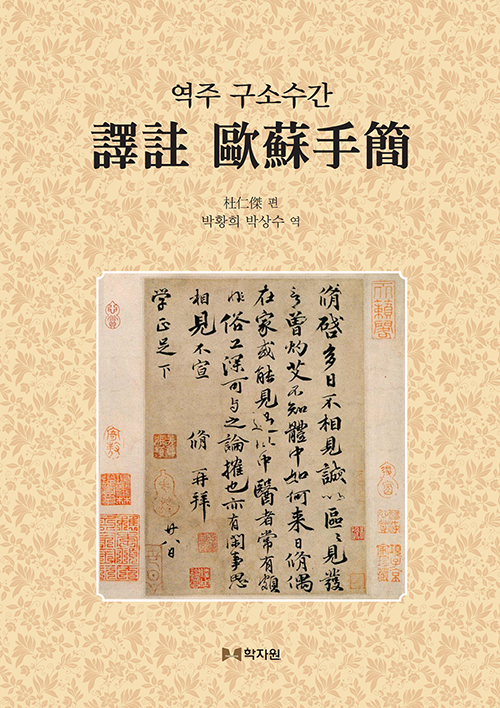 역주 구소수간
譯註 歐蘇手簡
杜仁傑 편
박황희 박상수 역
脩啓多日不相見誠以區區見發
言曾灼艾不知體中如何來日脩偶
在家或能見過此中醫者常有頗
非俗工深可與之論搉也亦有閑事思
相見不宣 脩 再拜 廿八日
学正足下
학자원